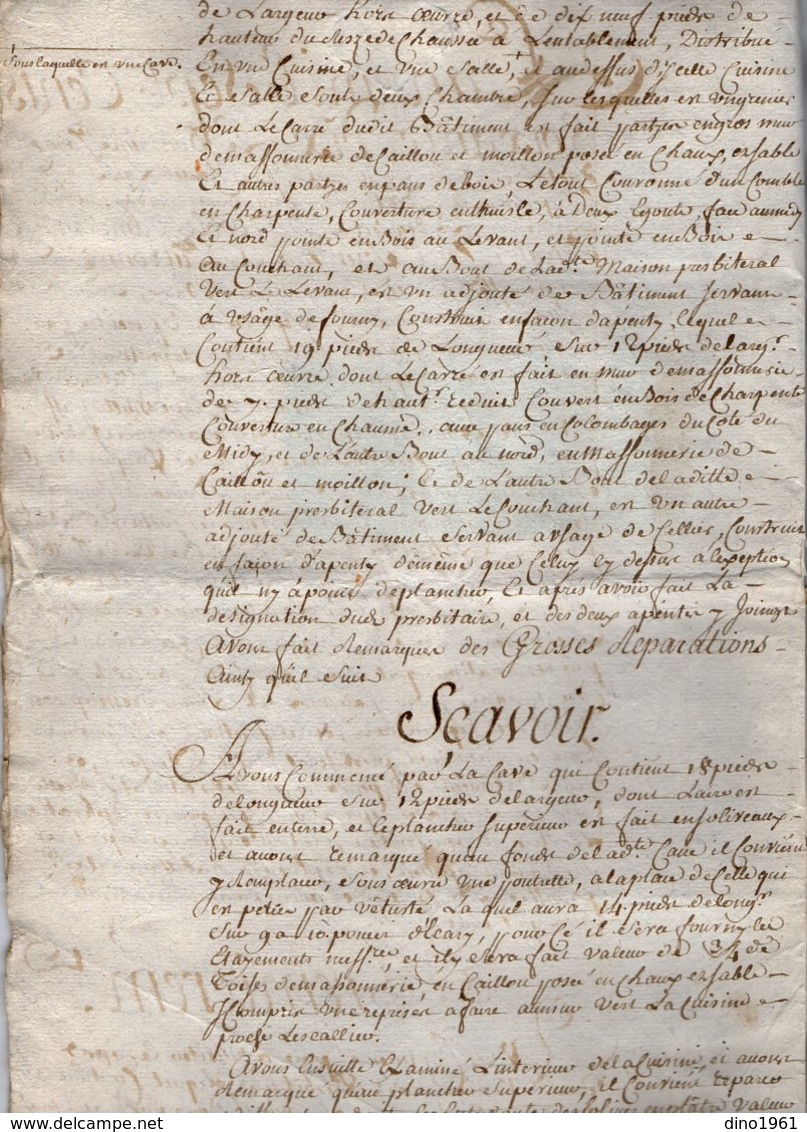 de Largeur hors œuvre, et de dix neuf pieds de
hauteur du Rezdechaussée à Lentablement, Distribué
Sous laquelle est une Cave.
En une Cuisine, et une Salle + et audessus d'icelle Cuisine
Et Salle sont deux Chambre, sur lesquelles est un grenier
dont Le Carré dudit Bâtiment est fait partye en gros mur
demassonnerie de Caillou et moillon posé en Chaux, et sable
Et autres partyes enpans debois, Letout Couronné d'un Comble
en Charpente, Couverture enthuille, à deux Egouts, face aumidy
Et nord pointe en Bois au Levant, et pointe en Bois
Au Couchant, et au Bout de Ladte. Maison presbiteral
Vert Le Levant, est un adjouté de Bâtiment servant
à Usâge de fourny, Construit en façon d'apenty, Lequel
Contient 19 pieds de Longueur sur 12 pieds de larg.r
hors œuvre dont Le Carré est fait en mur demassonnerie
de 7. pieds de haut.r reduit Couvert en Bois de Charpente
Couverture en Chaume, avec pans en Colombages du Coté du
Midy, et de L'autre Bout au nord, en Massonnerie de
Caillou et moillon; Et de L'autre Bout de laditte
Maison presbiteral Vert Le Couchant, est Un autre
adjouté de Bâtiment servant a usage de Cellier, Construit
en façon d'apenty demême que Celuy cy dessus à l'exeption
qu'il ny à point de plancher, Et après avoir fait La
designation dudt. presbitaire, et des deux apentis y Joingt
Avons fait Remarques des Grosses Reparations
Ainsy qu'il suit
Sçavoir.
Avons Commencé par La Cave qui Contient 18 pieds
delongueur sur 12 pieds delargeur, dont Laire est
fait enterre, et le plancher superieur est fait en soliveaux
et avons remarqué qu'au fonds de ladte. Cave il Convient
y Remplacer, sous œuvre une poutrelle, a la place de Celle qui
en perie par vétusté La quel aura 14. pieds de long.r
sur 9 a 10. pouces d'Ecary, pour Cé il sera fourny les
Etayements ness.re, et il y sera fait valeur de 3/4 de
Toises demassonnerie en Caillou posé en chaux et sable
Y Compris une reprises afaire aumur vert La Cuisine
proche Lescallier.
Avons Ensuitte Examiné L'interieur de la Cuisine, et avons
Remarqué qu'au plancher superieur, il Convient reparer